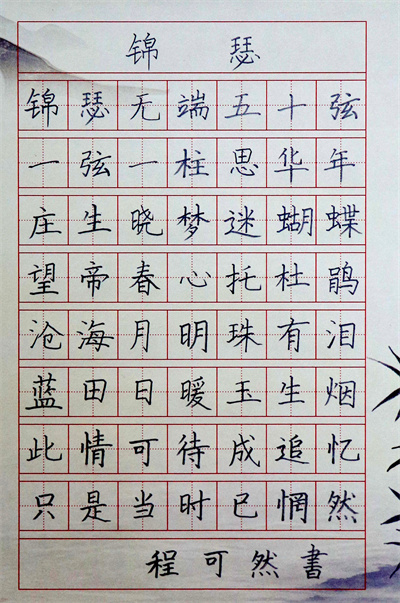 锦瑟
锦瑟无端五十弦
一弦一柱思华年
庄生晓梦迷蝴蝶
望帝春心托杜鹃
沧海月明珠有泪
蓝田日暖玉生烟
此情可待成追忆
只是当时已惘然
程可然書